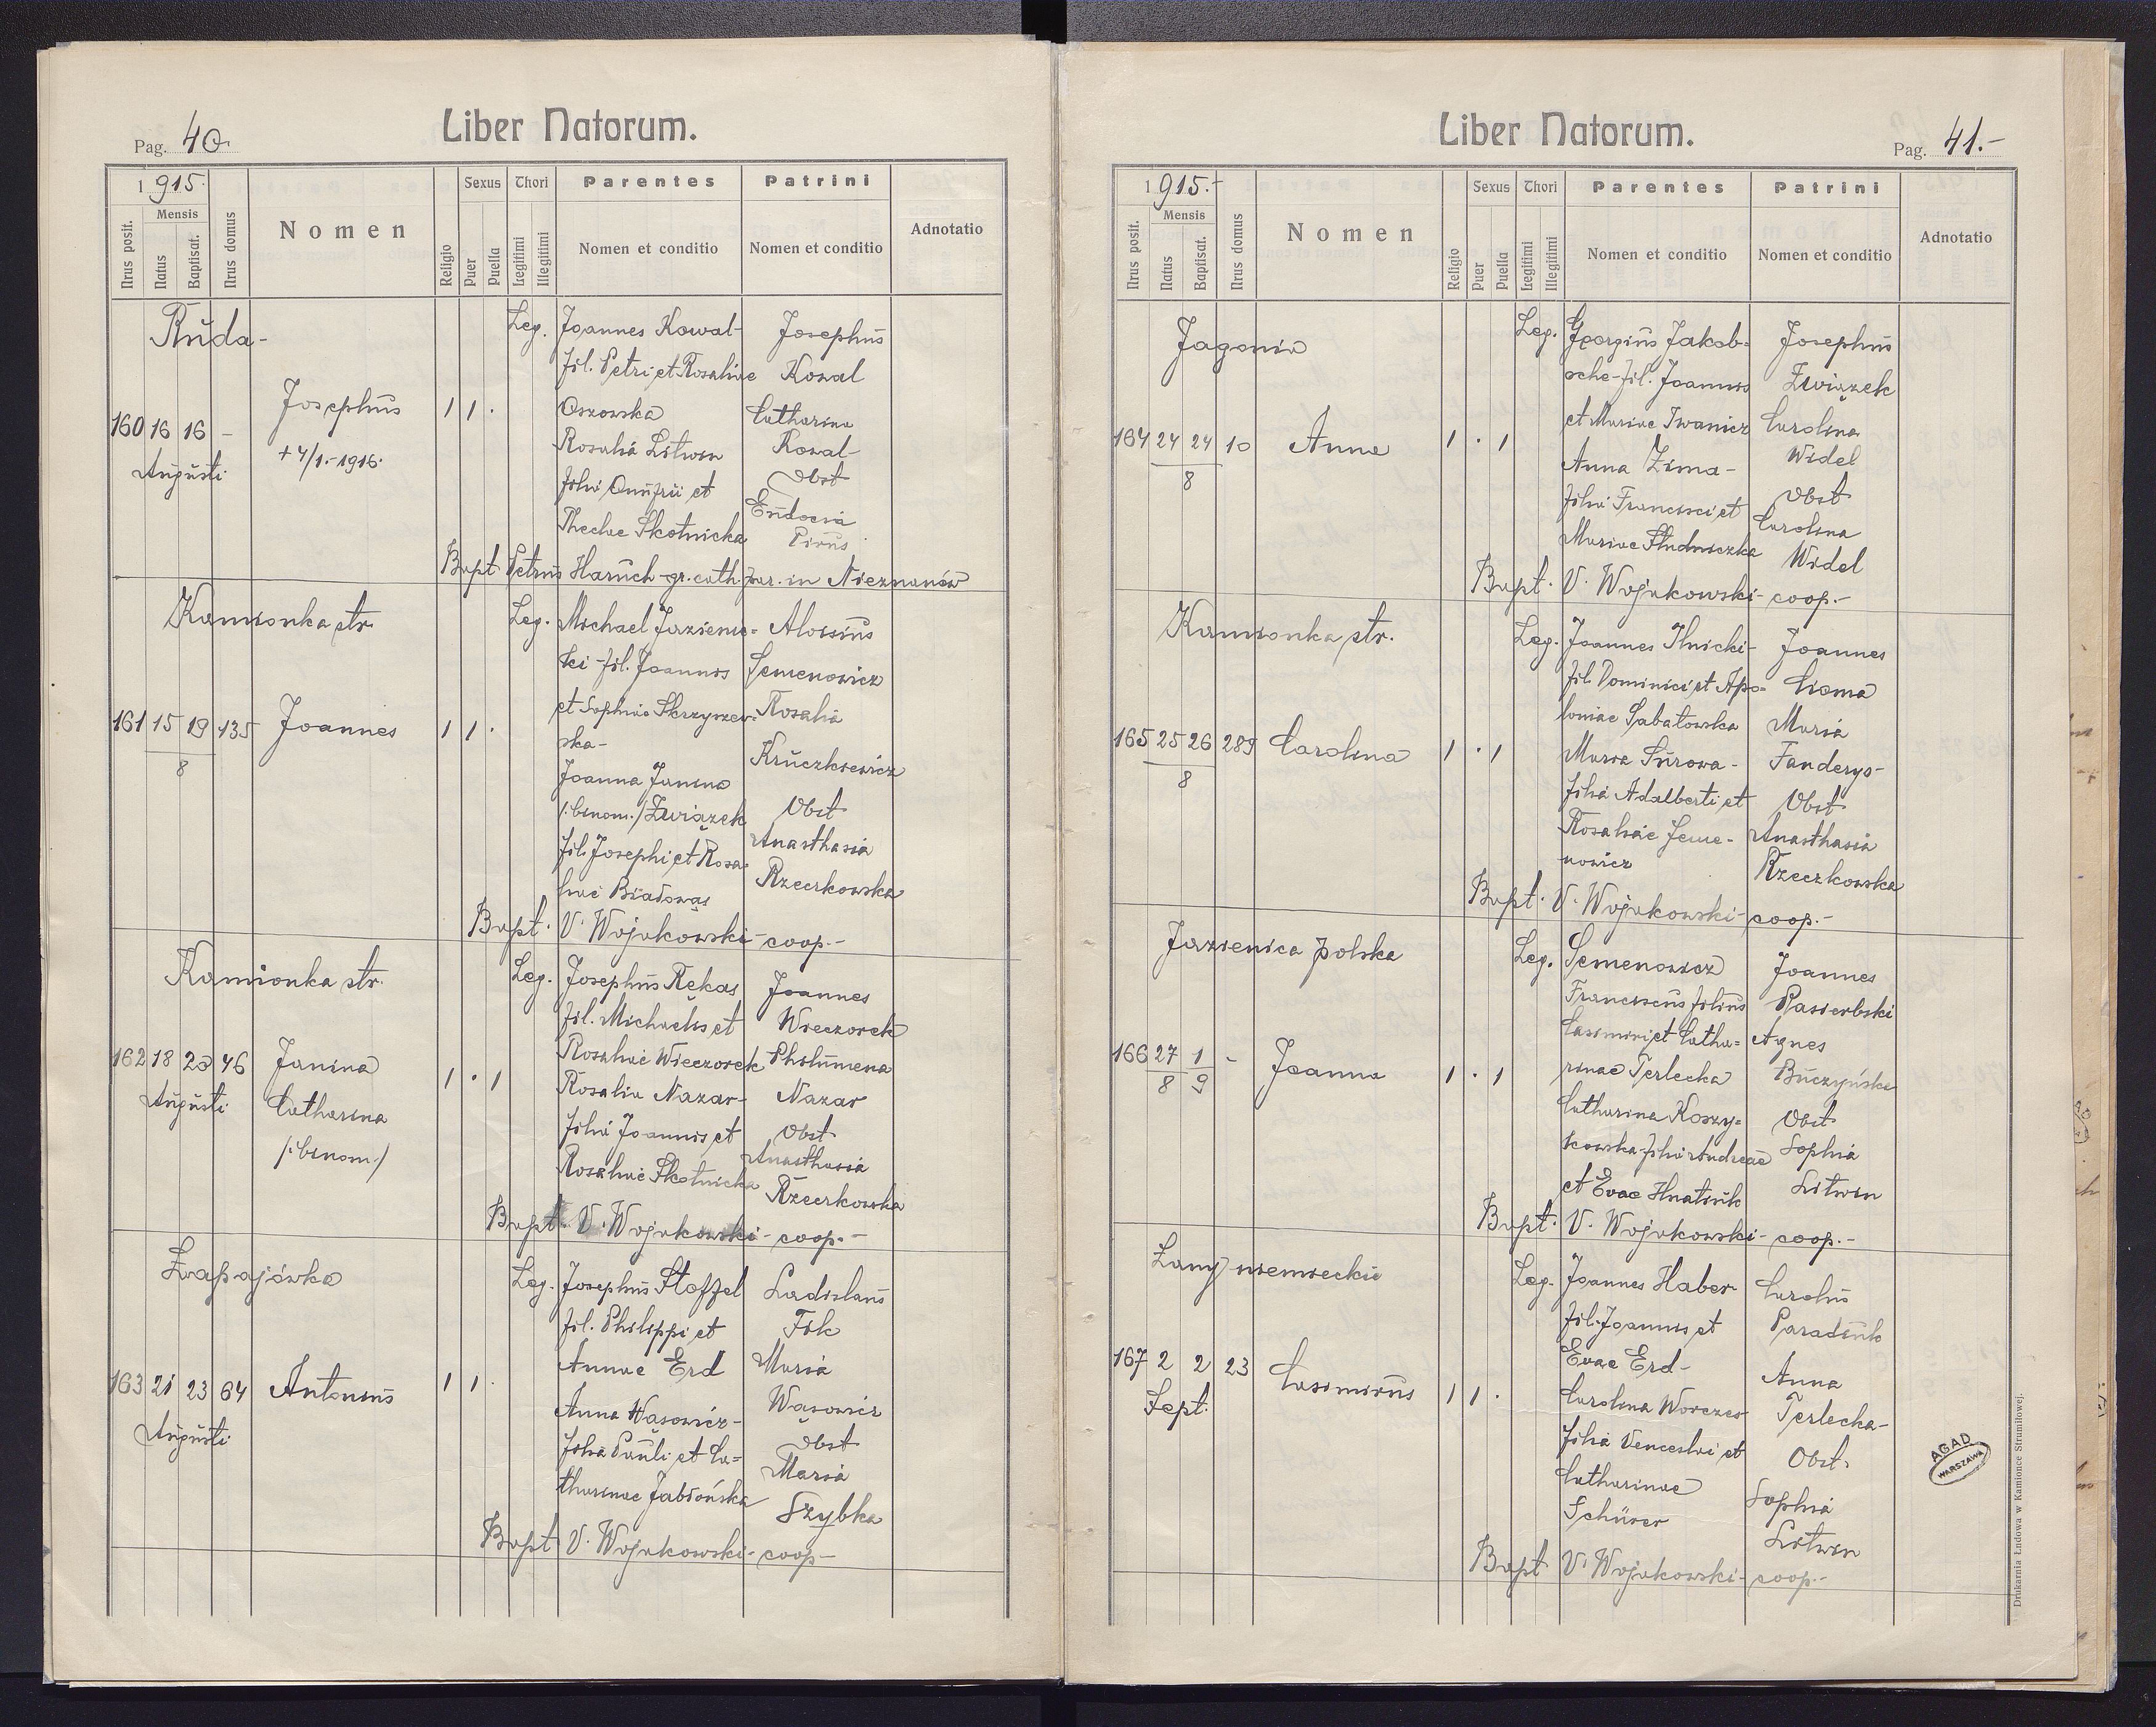 Liber Natorum.
Pag. 40
1 915.
Mensis
Nrus posit.
Natus
Baptisat.
Nrus domus
Nomen
Religio
Sexus
Puer
Puella
Thori
Legitimi
Illegitimi
Parentes
Nomen et conditio
Patrini
Nomen et conditio
Adnotatio
Ruda-
160 16 16 -
Augusti
Josephus
+ 4/1.-1916.
1 1 .
Leg.
Joannes Kowal-
fil. Petri et Rosaliae
Oszowska
Rosalia Litwin
filia Onufrii et
Theclae Skotnicka
Josephus
Kowal
Catharina
Kowal-
Obst
Eudocia
Pirus
Bapt Petrus Haruch-gr. cath. par. in Nieznanów
Kamionka str.
161 15 19 135
8
Joannes
1 1 .
Leg.
Michael Jazienic=
ki-fil. Joannis
et Sophiae Skrzyszew-
ska-
Joanna Janina
/:binom:/ Związek
fil. Josephi et Rosa-
liae Białowąs
Aloisius
Semenowicz
Rosalia
Kruczkiewicz
Obst
Anasthasia
Rzeczkowska
Bapt. V. Wojakowski-coop.-
Kamionka str.
162 18 23 46
Augusti
Janina
Catharina
/:binom:/
1 . 1
Leg.
Josephus Rekas
fil. Michaelis et
Rosaliae Wieczorek
Rosalia Nazar-
filia Joannis et
Rosaliae Skotnicka
Joannes
Wieczorek
Philumena
Nazar
Obst
Anasthasia
Rzeczkowska
Bapt. V. Wojakowski-coop.-
Łapajówka
163 21 23 64
Augusti
Antonius
1 1 .
Leg.
Josephus Stoffel
fil. Philippi et
Annae Erd
Anna Wąsowicz-
filia Pauli et Ca=
tharinae Jabłońska
Ladislaus
Fik
Maria
Wąsowicz
Obst
Maria
Szybka
Bapt V. Wojakowski-coop-
Liber Natorum.
Pag. 41.-
1 915.-
Mensis
Nrus posit.
Natus
Baptisat.
Nrus domus
Nomen
Religio
Sexus
Puer
Puella
Thori
Legitimi
Illegitimi
Parentes
Nomen et conditio
Patrini
Nomen et conditio
Adnotatio
Jagonia
164 24 24 10
8
Anna
1 . 1
Leg.
Georgius Jakob=
sche-fil. Joannis
et Mariae Iwanicz
Anna Zima-
filia Francisci et
Mariae Studniczka
Josephus
Związek
Carolina
Widel
Obst
Carolina
Widel
Bapt. V. Wojakowski-coop.-
Kamionka str.
165 25 26 289
8
Carolina
1 . 1
Leg.
Joannes Ilnicki-
fil. Dominici et Apo=
loniae Sabatowska
Maria Surowa-
filia Adalberti et
Rosaliae Seme-
nowicz
Joannes
Cisma
Maria
Fanderys-
Obst
Anasthasia
Rzeczkowska
Bapt. V. Wojakowski-coop.-
Jazienica polska
166 27 1 -
8 9
Joanna
1 . 1
Leg.
Semenowicz
Franciscus filius
Casimiri et Catha=
rinae Terlecka
Catharina Koszy=
kowska-filia Andreae
et Evae Hnatiuk
Joannes
Pasierbski
Agnes
Buczyńska
Obst
Sophia
Litwin
Bapt. V. Wojakowski-coop.-
Łany niemieckie
167 2 2 23
Sept.
Casimirus
1 1 .
Leg.
Joannes Haber
fil. Joannis et
Evae Erd-
Carolina Worczes
filia Venceslai et
Catharinae
Schürer
Carolus
Paradiuk
Anna
Terlecka-
Obst.
Sophia
Litwin
Bapt V. Wojakowski-coop.-
AGAD
WARSZAWA
Drukarnia Łndowa w Kamionce Strumiłowej.